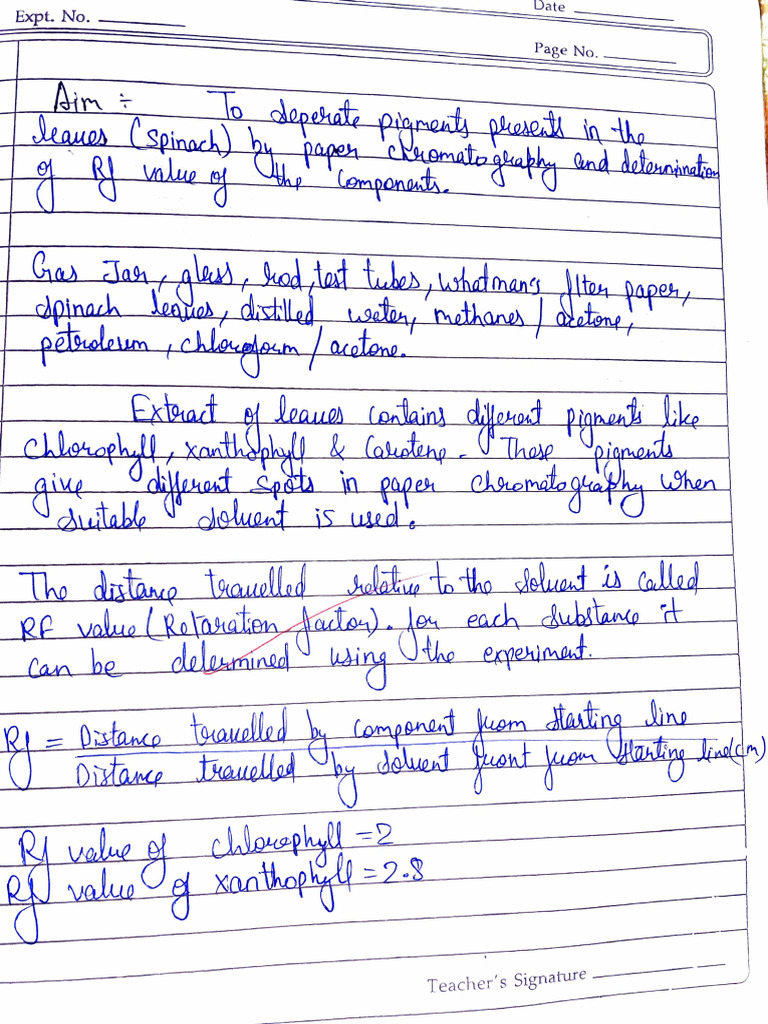 Expt. No.
Date
Page No.
Aim ÷ To deperate pigments presents in the
leaves (spinach) by paper chromatography and determination
of Rf value of the components.
Gas Jar, glass, rod, test tubes, whatman's flter paper,
spinach leaves, distilled water, methanes / acetone,
petroleum, chloroform / acetone.
Extract of leaves contains different pigments like
chlorophyll, xanthophyll & Carotene. These pigments
give different spots in paper chromatography when
suitable solvent is used.
The distance travelled relative to the solvent is called
RF value (Retaration factor). for each substance it
can be determined using the experiment.
Rf = Distance travelled by component from starting line
Distance travelled by solvent front from starting line(cm)
Rf value of chlorophyll = 2
Rf value of xanthophyll = 2.8
Teacher's Signature